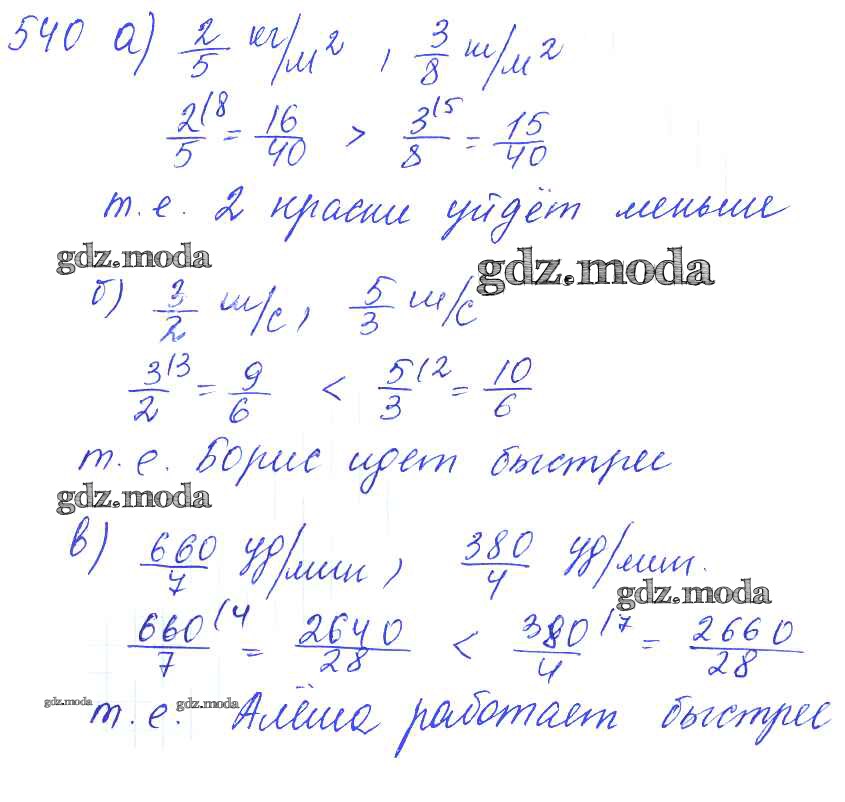 540 а) 2/5 кг/м², 3/8 ш/м²
2/5 (8 = 16/40 > 3/8 (5 = 15/40
т.е. 2 краски уйдёт меньше
gdz.moda gdz.moda
б) 3/2 м/с, 5/3 м/с
3/2 (3 = 9/6 < 5/3 (2 = 10/6
т.е. Борис идет быстрее
gdz.moda
в) 660/7 уд/мин, 380/4 уд/мин.
gdz.moda
660/7 (4 = 2640/28 < 380/4 (7 = 2660/28
gdz.moda gdz.moda
т.е. Алёша работает быстрее